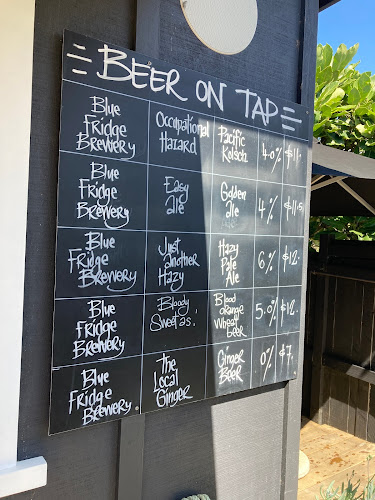 BEER ON TAP
Blue
Fridge
Brewery
Occupational
Hazard
Pacific
Kolsch
4.0%
$11.
Blue
Fridge
Brewery
Easy
ale
Golden
ale
4%
$11.5
Blue
Fridge
Brewery
Just
another
Hazy
Hazy
Pale
Ale
6%
$12.
Blue
Fridge
Brewery
Bloody
Sweet as!
Blood
orange
Wheat
beer
5.0%
$12.
Blue
Fridge
Brewery
The
Local
Ginger
Ginger
Beer
0%
$7.